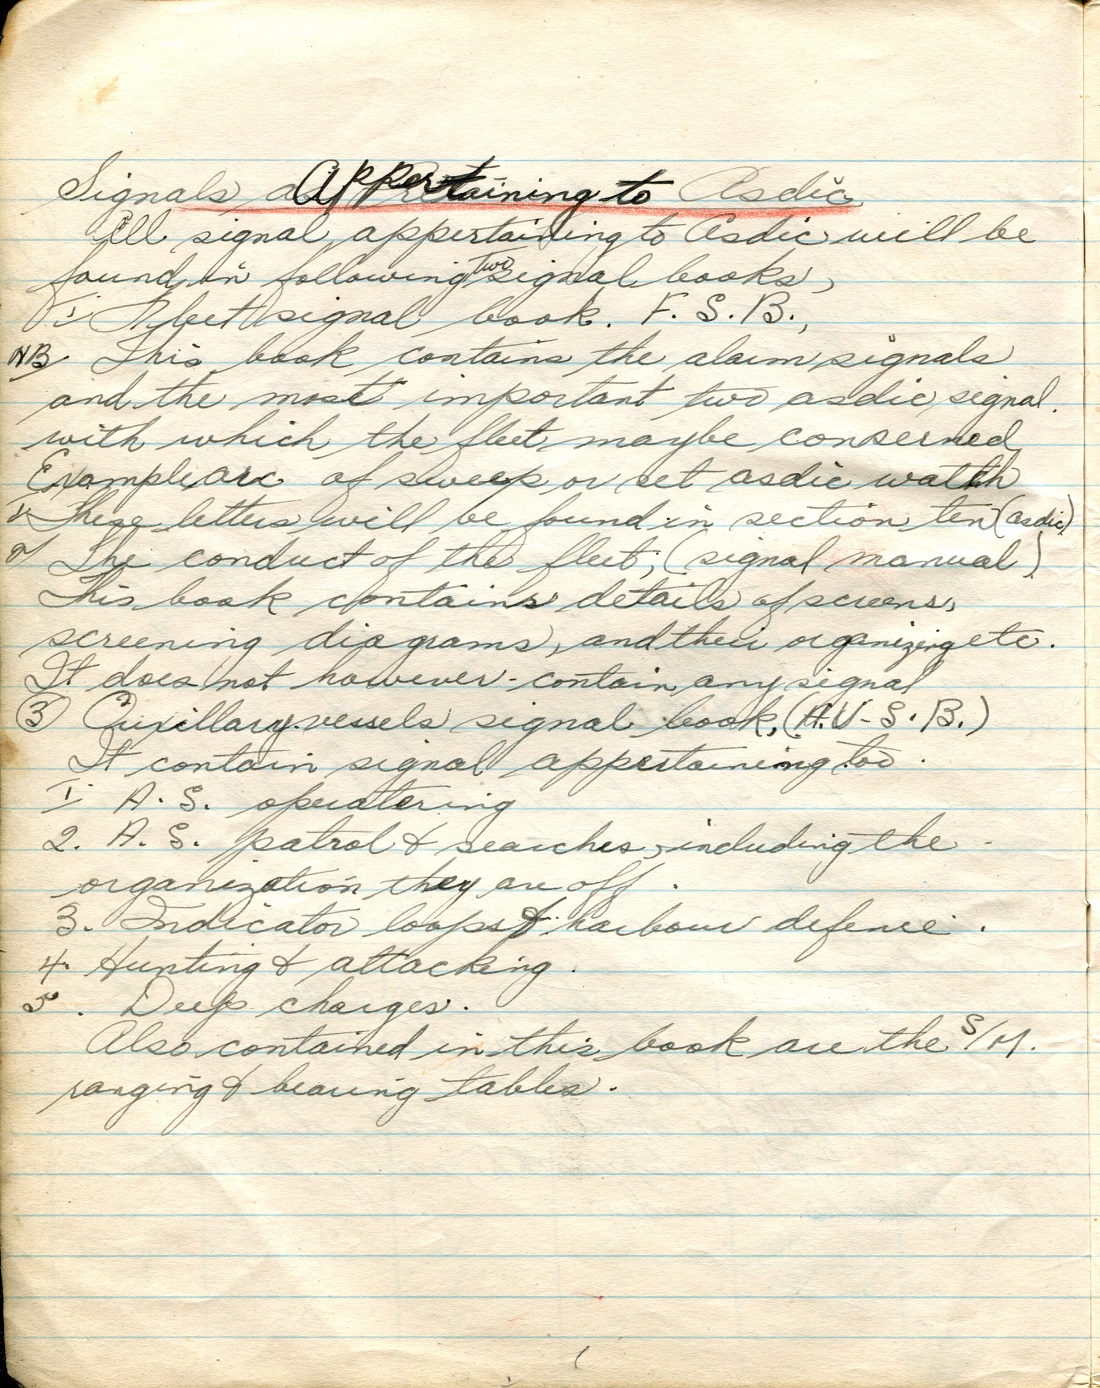 Signals Appertaining to Asdic
All signal appertaining to Asdic will be
found in following two signal books,
1: Fleet signal book. F. S. B.,
NB. This book contains the alarm signals
and the most important two asdic signal.
with which the fleet maybe conserned
Example arc of sweep or set asdic watch
These letters will be found in section ten (asdic)
2/ The conduct of the fleet; (signal manual)
This book contains details of screens,
screening diagrams, and their organizing etc.
It does not however contain any signal
③ Auxillary vessels signal book, (A.V-S.B.)
It contain signal appertaining too.
1. A. S. operatering
2. A. S. patrol & searches, including the
organization they are off.
3. Indicator loops & harbour defence.
4. Hunting & attacking.
5. Deep charges.
Also contained in this book are the S/M.
ranging & bearing tables.